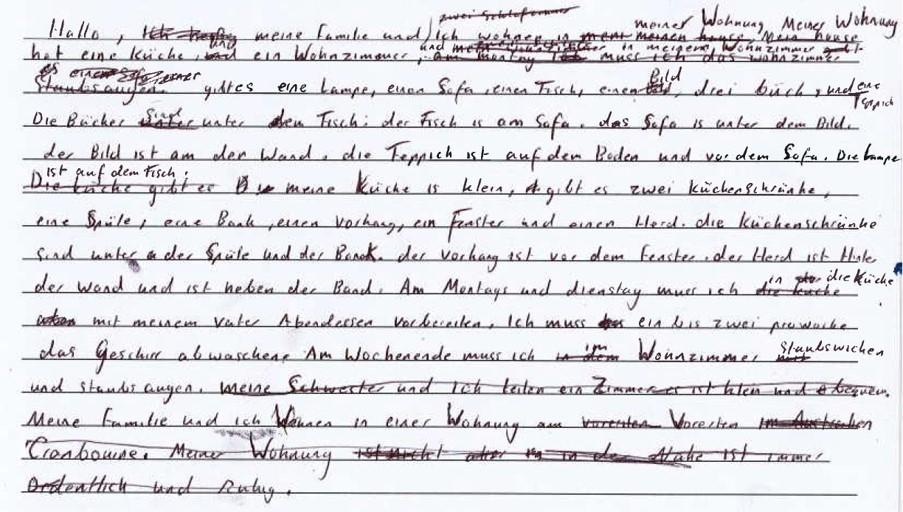 zwei Schlafzimmer meiner Wohnung Meiner Wohnung
Hallo, meine Familie und ich wohnen in meinen house, Mein house
hat eine Küche, und ein Wohnzimmer, und in meinem Wohnzimmer
am montag muss ich das wohnzimmer
es
staubsaugen. gibtes eine Lampe, einen Sofa, einen Tisch, einen Bild, drei büch, und ene Teppich
Die Bücher sind unter dem Tisch. der Tisch is am Sofa. das Sofa is unter dem Bild.
der Bild ist am der Wand. die Teppich ist auf dem Boden und vor dem Sofa. Die Lampe
ist auf dem Tisch.
Die küche gibt es Die meine Küche is klein, gibt es zwei Küchenschränke,
eine Spüle, eine Bank, einen Vorhang, ein Fenster und einen Herd. die Küchenschränke
sind unter der Spüle und der Bank. der Vorhang ist vor dem Fenster. der Herd ist Hinter
der Wand und ist neben der Band. Am Montags und dienstag muss ich in die Küche
die küche
mit meinem vater Abendessen vorbereiten. Ich muss ein bis zwei prowoche
das Geschirr abwaschene Am Wochenende muss ich im Wohnzimmer staubswichen
und staubsaugen. meine Schwester und ich teilen ein Zimmer es ist klein und bequem.
Meine Familie und ich Wohnen in einer Wohnung am vororten Vororten im Australien
Cranbourne. Meiner Wohnung ist nicht aber in der Nahe ist immer
Ordentlich und Ruhig.